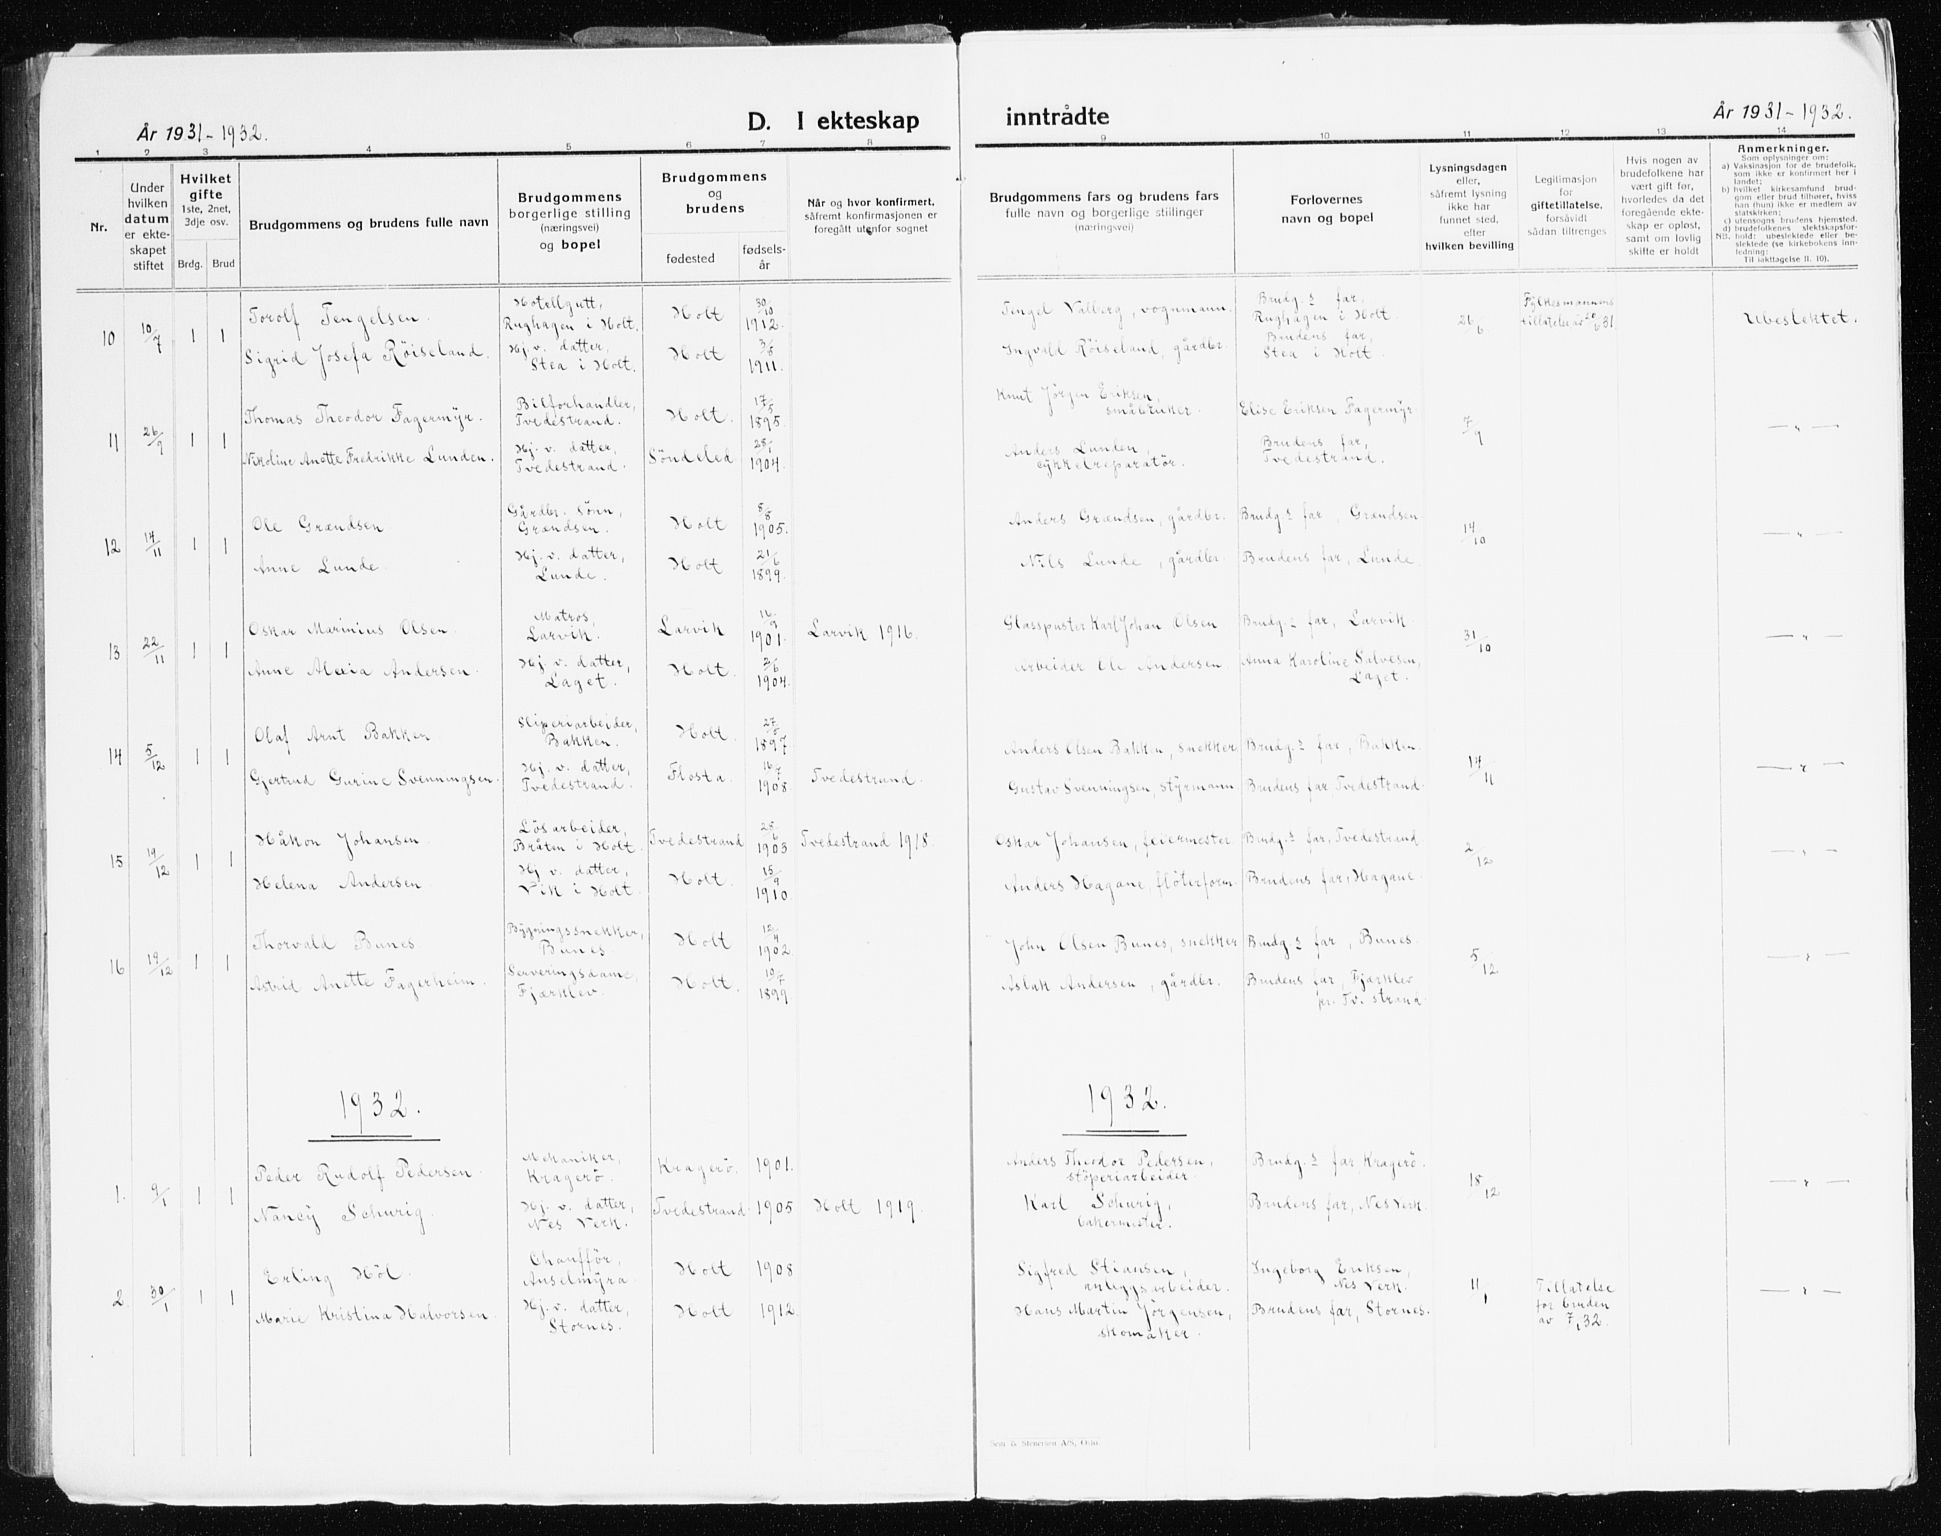 År 1931-1932.
D. I ekteskap
inntrådte
År 1931-1932.
1 2 3 4 5 6 7 8 9 10 11 12 13 14
Nr.
Under
hvilken
datum
er ekte-
skapet
stiftet
Hvilket
gifte
1ste, 2net,
3dje osv.
Brdg. Brud
Brudgommens og brudens fulle navn
Brudgommens
borgerlige stilling
(næringsvei)
og bopel
Brudgommens
og
brudens
fødested
fødsels-
år
Når og hvor konfirmert,
såfremt konfirmasjonen er
foregått utenfor sognet
Brudgommens fars og brudens fars
fulle navn og borgerlige stillinger
(næringsvei)
Forlovernes
navn og bopel
Lysningsdagen
eller,
såfremt lysning
ikke har
funnet sted,
efter
hvilken bevilling
Legitimasjon
for
giftetillatelse,
forsåvidt
sådan tiltrenges
Hvis nogen av
brudefolkene har
vært gift før,
hvorledes da det
foregående ekte-
skap er opløst,
samt om lovlig
skifte er holdt
Anmerkninger.
Som oplysninger om:
a) Vaksinasjon for de brudefolk,
som ikke er konfirmert her i
landet;
b) hvilket kirkesamfund brud-
gom eller brud tilhører, hviss
han (hun) ikke er medlem av
statskirken;
c) utensogns brudens hjemsted.
d) brudefolkenes slektskapsfor-
NB. hold: ubeslektede eller be-
slektede (se kirkebokens inn-
ledning;
Til iakttagelse II. 10).
10 10/7 1 1
Torolf Tengelsen.
Hotellgutt,
Rughagen i Holt.
Holt
30/10
1912.
Tengel Valberg, vognmann.
Brudg.s far,
Rughagen i Holt.
26/6
Fylkesmannens
tillatelse av 20/6 31.
Ubeslektet.
Sigrid Josefa Röiseland.
Hj. v. datter,
Stea i Holt.
Holt
1911.
Ingvald Röiseland, gårdbr.
Brudens far,
Stea i Holt.
11 26/9 1 1
Thomas Theodor Fagermyr.
Bilforhandler,
Tvedestrand.
Holt.
17/5
1895.
Knut Jörgen Eriksen,
småbruker.
Elise Eriksen Fagermyr
7/9
— " —
Nikoline Anette Fredrikke Lunden.
Hj. v. datter,
Tvedestrand.
Söndeled
28/1
1904.
Anders Lunden,
cykkelreparatör.
Brudens far,
Tvedestrand.
12 14/11 1 1
Ole Grændsen
Gårdbr. sönn,
Grændsen.
Holt
8/8
1905.
Anders Grændsen, gårdbr.
Brudg.s far, Grændsen
14/10
— " —
Anne Lunde.
Hj. v. datter,
Lunde.
Holt
21/6
1899.
Nils Lunde, gårdbr.
Brudens far, Lunde.
13 22/11 1 1
Oskar Marinius Olsen.
Matros,
Larvik.
Larvik
16/9
1901.
Larvik 1916.
Glasspuster Karl Johan Olsen
Brudg.s far, Larvik.
31/10
— " —
Anne Alexia Andersen.
Hj. v. datter,
Laget.
Holt.
2/6
1904.
Arbeider Ole Andersen
Anna Karoline Salvesen,
Laget.
14 5/12 1 1
Olaf Arnt Bakken
Sliperiarbeider,
Bakken.
Holt.
1897
Anders Olsen Bakken, snekker
Brudg.s far, Bakken.
14/11
— " —
Gjertrud Gurine Svenningsen.
Hj. v. datter,
Tvedestrand.
Flosta.
16/7
1908.
Tvedestrand.
Gustav Svenningsen, styrmann
Brudens far, Tvedestrand.
15 19/12 1 1
Håkon Johansen.
Lösarbeider,
Bråten i Holt.
Tvedestrand
28/6
1903
Tvedestrand 1918.
Oskar Johansen, feiermester
Brudg.s far, Tvedestrand
2/12
— " —
Helena Andersen
Hj. v. datter,
Vik i Holt.
Holt.
15/9
1910
Anders Hagane, flöterform.
Brudens far, Hagane.
16 19/12 1 1
Thorvald Bunes
Bygningssnekker,
Bunes.
Holt
12/4
1902.
John Olsen Bunes, snekker
Brudg.s far, Bunes.
5/12
— " —
Astrid Anette Fagerheim.
Serveringsdame,
Fjærklev.
Holt.
10/7
1899
Aslak Andersen, gårdbr.
Brudens far, Fjærklev
pr. Tv. strand.
1932.
1932.
1. 9/1 1 1
Peder Rudolf Pedersen.
Mekaniker,
Kragerö.
Kragerö.
1901.
Anders Theodor Pedersen,
stöperiarbeider.
Brudg.s far, Kragerö.
18/12
— " —
Nancy Schurig.
Hj. v. datter,
Nes Verk.
Tvedestrand.
1905
Holt 1919.
Karl Schurig,
bakermester.
Brudens far, Nes Verk.
2. 30/1 1 1
Erling Höl.
Chafför,
Anselmyra.
Holt
1908
Sigfred Stiansen,
anleggsarbeider.
Ingeborg Eriksen,
Nes Verk.
11/1
Tillatelse
for bruden
av 7/1 32.
— " —
Marie Kristina Halvorsen.
Hj. v. datter,
Stornes.
Holt
1912.
Hans Martin Jörgensen,
skomaker.
Brudens far, Stornes.
Sem & Stenersen A/S, Oslo.